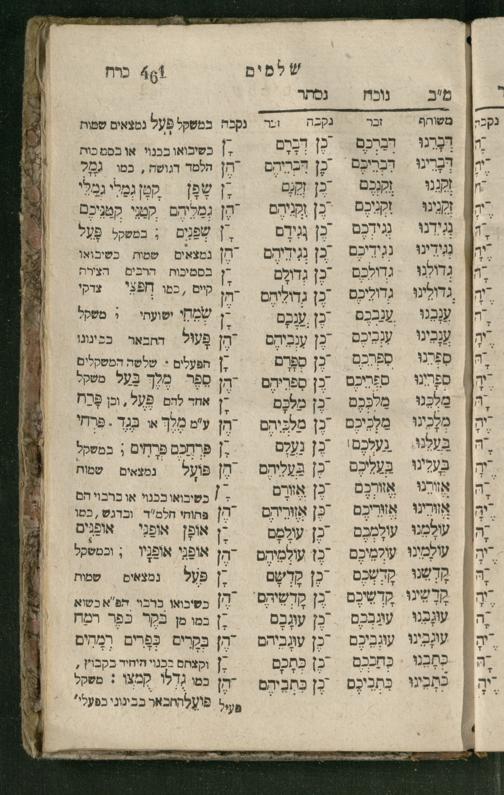 שלמים 461 כרח
מ"ב נוכח נסתר
משותף זכר נקבה זכר נקבה במשקל פָּעָל נמצאים שמות
דְּבָרֵנוּ דְּבַרְכֶם ־כֶן דְּבָרָם ־ָן כשיבואו בכנוי או בסמכות
דְּבָרֵינוּ דִּבְרֵיכֶם ־כֶן דִּבְרֵיהֶם ־הֶן הלמד דגושה, כמו גָמָל
זְקֵנֵנוּ זְקַנְכֶם ־כֶן זְקֵנָם ־ָן שָׁפָן קָטָן גְּמַלִּי גְּמַלֵּי
זְקֵנֵינוּ זִקְנֵיכֶם ־כֶן זִקְנֵיהֶם ־הֶן גְּמַלֵּיהֶם קְטַנֵּי קְטַנֵּיכֶם
נְגִידֵנוּ נְגִידְכֶם ־כֶן נְגִידָם ־ָן שְׁפַנִּים ; במשקל פָּעֵל
נְגִידֵינוּ נְגִידֵיכֶם ־כֶן נְגִידֵיהֶם ־הֶן נמצאים שמות כשיבואו
גְדוֹלֵנוּ גְדוֹלְכֶם ־כֶן גְדוֹלָם ־ָן בסמיכות הרבים הצירה
גְדוֹלֵינוּ גְדוֹלֵיכֶם ־כֶן גְדוֹלֵיהֶם ־הֶן קיים, כמו חֲפֵצֵי צדקי
עֲנָבֵנוּ עֲנַבְכֶם ־כֶן עֲנָבָם ־ָן שְׂמֵחֵי ישועתי ; משקל
עֲנָבֵינוּ עִנְבֵיכֶם ־כֶן עִנְבֵיהֶם ־הֶן פָּעוּל התבאר בבינוני
סִפְרֵנוּ סִפְרְכֶם ־כֶן סִפְרָם ־ָן הפעלים · שלשה המשקלים
סְפָרֵינוּ סִפְרֵיכֶם ־כֶן סִפְרֵיהֶם ־הֶן סֵפֶר מֶלֶךְ בַּעַל משקל
מַלְכֵּנוּ מַלְכְּכֶם ־כֶן מַלְכָּם ־ָן אחד להם פֶּעֶל, וכן פֶּרַח
מְלָכֵינוּ מַלְכֵיכֶם ־כֶן מַלְכֵיהֶם ־הֶן ע"מ מֶלֶךְ או בֶּגֶד · פִּרְחִי
בַּעֲלֵנוּ בַּעַלְכֶם ־כֶן בַּעֲלָם ־ָן פִּרְחֲכֶם פְּרָחִים ; במשקל
בְּעָלֵינוּ בַּעֲלֵיכֶם ־כֶן בַּעֲלֵיהֶם ־הֶן פוֹעָל נמצאים שמות
אֲזוֹרֵנוּ אֲזוֹרְכֶם ־כֶן אֲזוֹרָם ־ָן כשיבואו בכנוי או ברבוי הם
אֲזוֹרֵינוּ אֲזוֹרֵיכֶם ־כֶן אֲזוֹרֵיהֶם ־הֶן פתוחי הלמ"ד ובדגש, כמו
עוֹלָמֵנוּ עוֹלַמְכֶם ־כֶן עוֹלָמָם ־ָן אוֹפָן אוֹפַנֵּי אוֹפַנִּים
עוֹלָמֵינוּ עוֹלְמֵיכֶם ־כֶן עוֹלְמֵיהֶם ־הֶן אוֹפַנֵּי אוֹפַנָּיו ; ובמשקל
קָדְשֵׁנוּ קָדְשְׁכֶם ־כֶן קָדְשָׁם ־ָן פֹּעֶל נמצאים שמות
קָדְשֵׁינוּ קָדְשֵׁיכֶם ־כֶן קָדְשֵׁיהֶם ־הֶן כשיבואו ברבוי הפ"א בשוא
עוּגָבֵנוּ עוּגַבְכֶם ־כֶן עוּגָבָם ־ָן כמו מן בֹּקֶר כֹּפֶר רֹמַח
עוּגָבֵינוּ עוּגְבֵיכֶם ־כֶן עוּגְבֵיהֶם ־הֶן בְּקָרִים כְּפָרִים רְמָחִים
כְּתָבֵנוּ כְּתַבְכֶם ־כֶן כְּתָבָם ־ָן וקצתם בכנוי היחיד בקבוץ,
כְּתָבֵינוּ כְּתָבֵיכֶם ־כֶן כְּתָבֵיהֶם ־הֶן כמו גֻּדְלוֹ קֻמְצוֹ : משקל
פועֵל התבאר בבינוני בפעלי'
פעיל